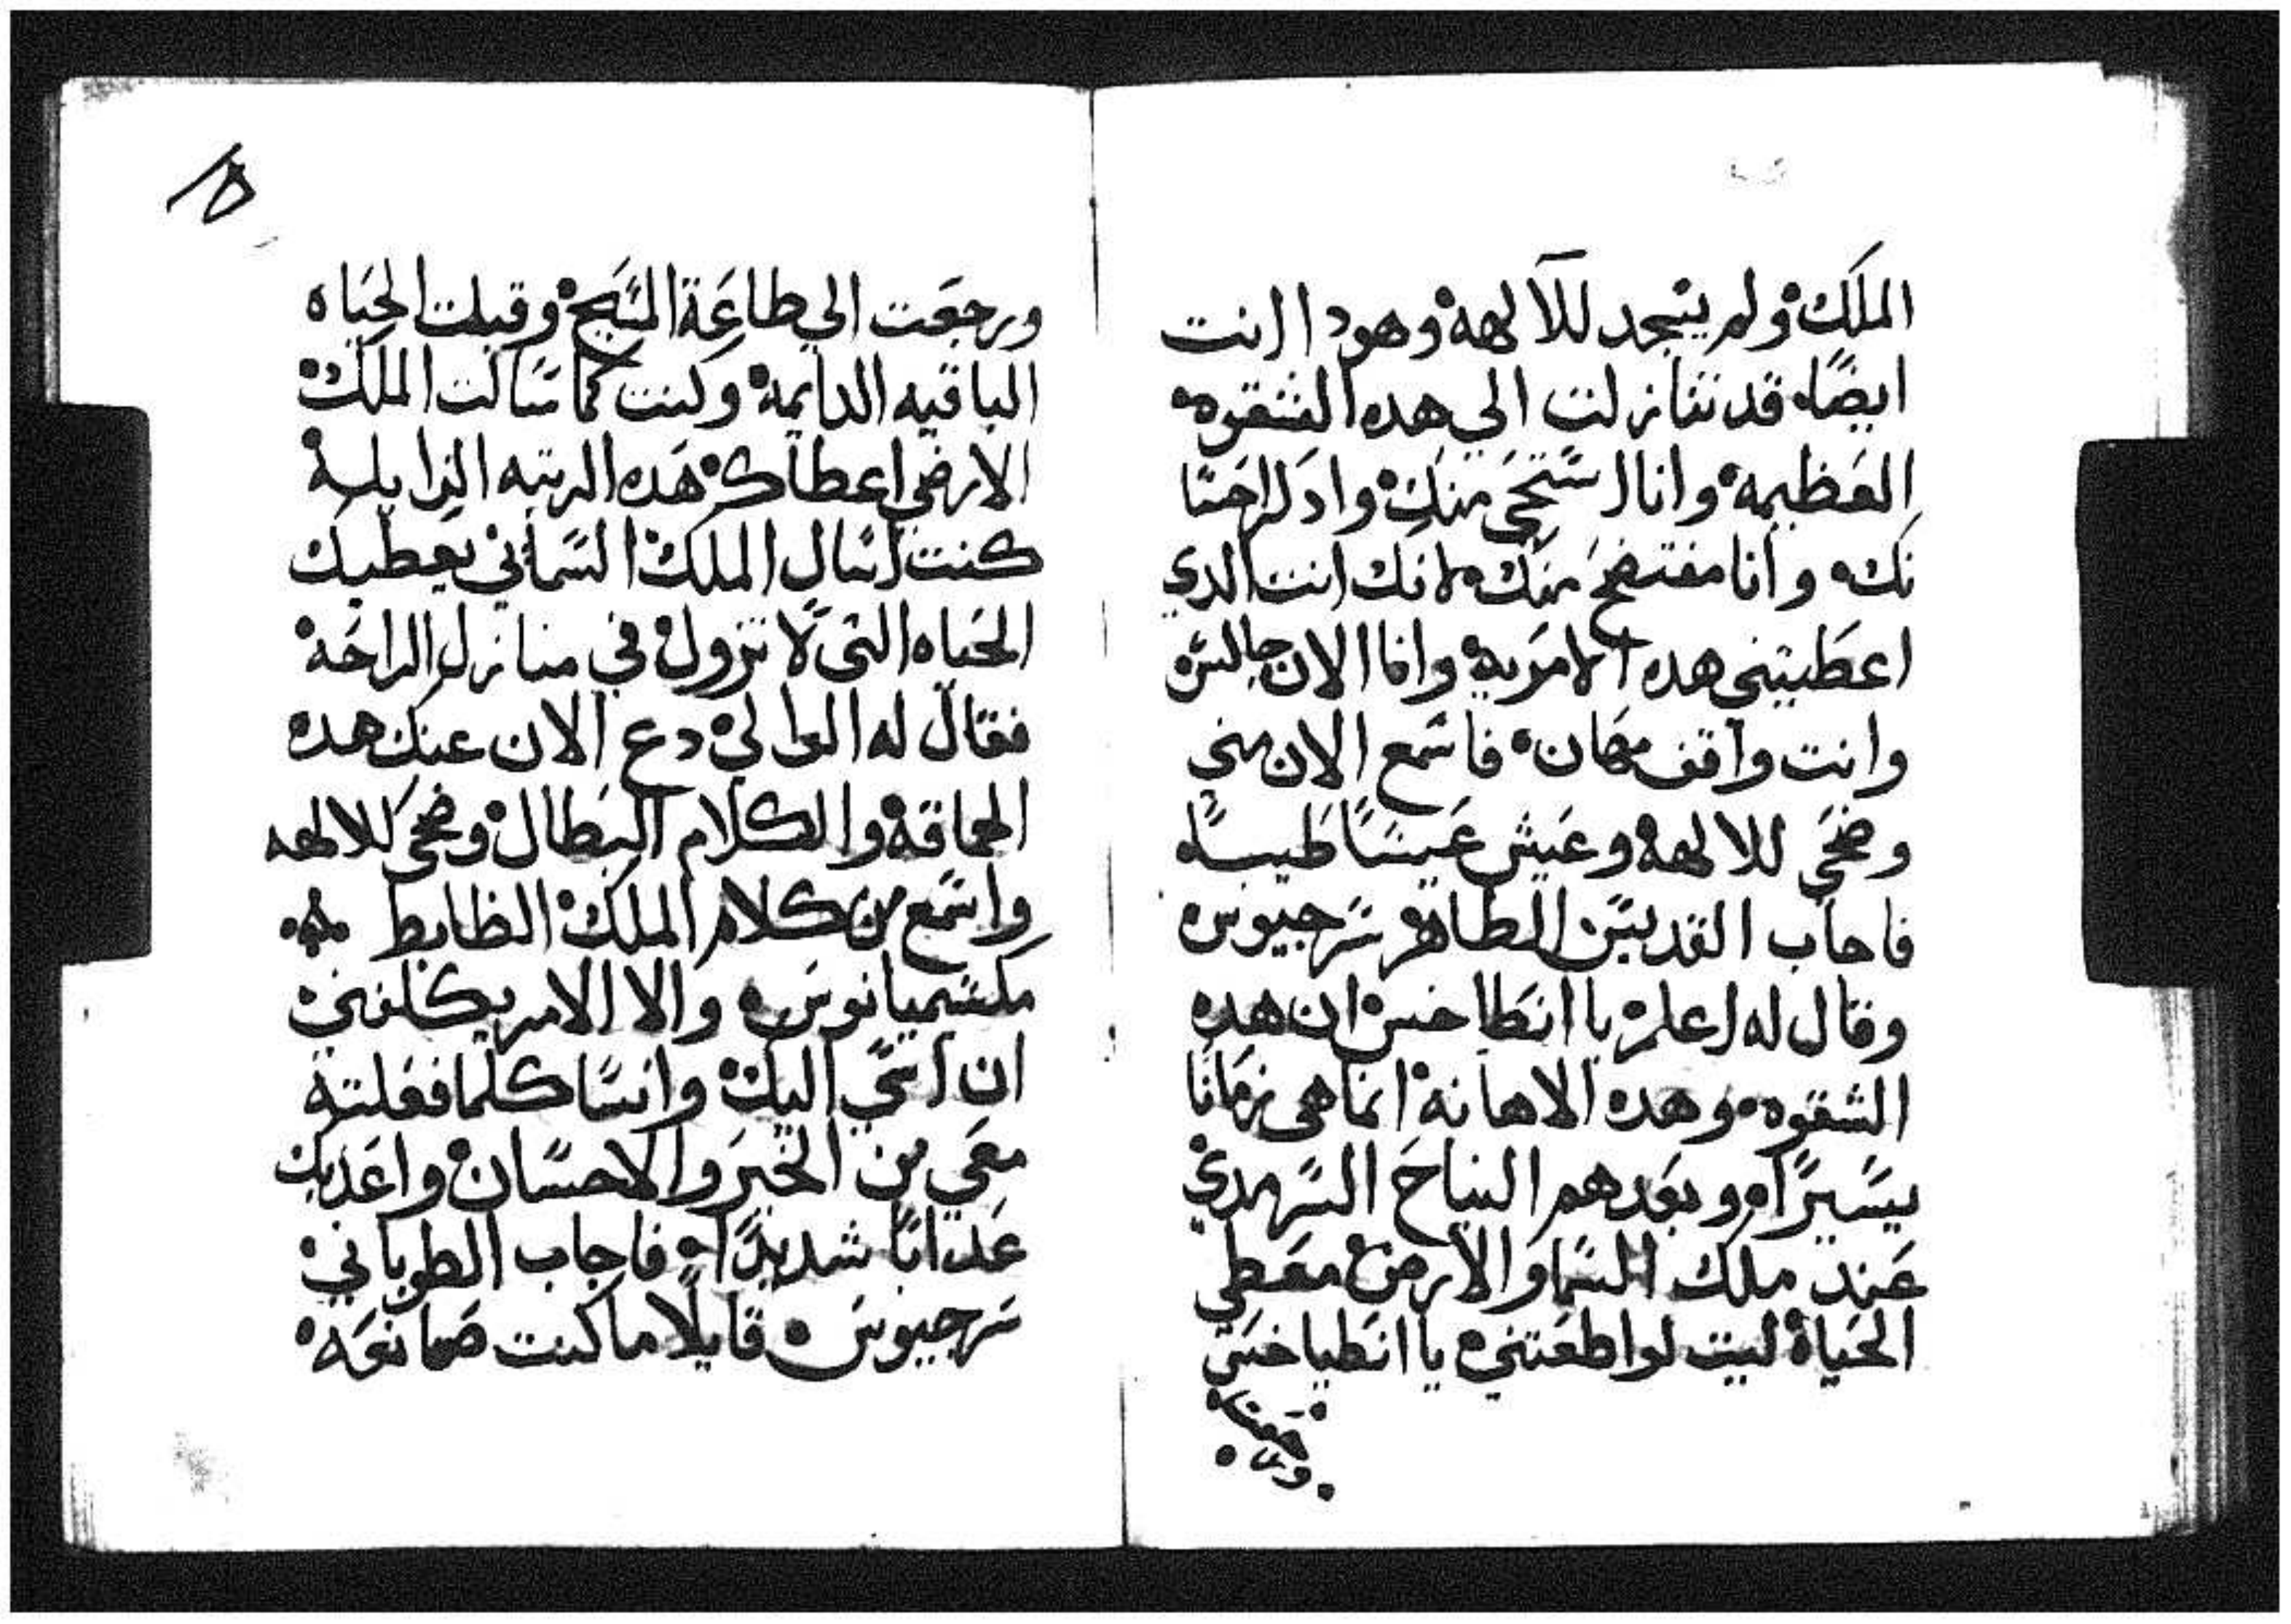 الملك ولم يسجد للآلهه وهودا انت
ايضًا قد تنازلت الي هده الشقوه
العظيمه وانا استحي منك واد لاحسا
نك وانا مفتضح منك لانك انت الدي
اعطيتني هده الامريه وانا الان جالس
وانت واقف مهان فاسمع الان مني
وضحي للالهه وعيش عيشًا طيبًا
فاجاب القديس الطاهر سرجيوس
وقال له اعلم يا انطاخس ان هده
الشقوه وهده الاهانه انما هي زمانًا
يسيرًا وبعدهم النياح السرمدي
عند ملك السما والارض معطي
الحياة ليت لو اطعتني يا انطياخس
ورجعت
١٥
ورجعت الي طاعة المسيح وقبلت الحياه
الباقيه الدايمه وكنت كما سالت الملك
الارضي اعطاك هده الرتبه الزايله
كنت اسال الملك السماني يعطيك
الحياه التي لا تزول في منازل الراحه
فقال له الوالي دع الان عنك هده
الحماقه والكلام البطال وضحي للالهه
واسمع من كلام الملك الظابط
مكسيميانوس والا الامر يكلفني
ان اسي اليك وانسا كلما فعلته
معي من الخير والاحسان واعدبك
عدابًا شديدًا فاجاب الطوباني
سرجيوس قايلًا ما كنت صمانعه